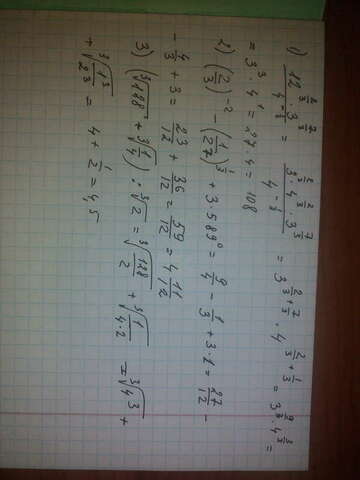 1) 12^(2/3) · 3^(7/3) / 4^(-1/3) = 3^(2/3) · 4^(2/3) · 3^(7/3) / 4^(-1/3) = 3^(2/3 + 7/3) · 4^(2/3 + 1/3) = 3^(9/3) · 4^(3/3) =
= 3³ · 4¹ = 27 · 4 = 108
2) (2/3)^(-2) − (1/27)^(1/3) + 3 · 589⁰ = 9/4 − 1/3 + 3 · 1 = 27/12 −
− 4/3 + 3 = 23/12 + 36/12 = 59/12 = 4 11/12
3) (∛128 + ∛(1/4)) : ∛2 = ∛(128/2) + ∛(1/(4·2)) = ∛(4³) +
+ ∛(1³/2³) = 4 + 1/2 = 4,5